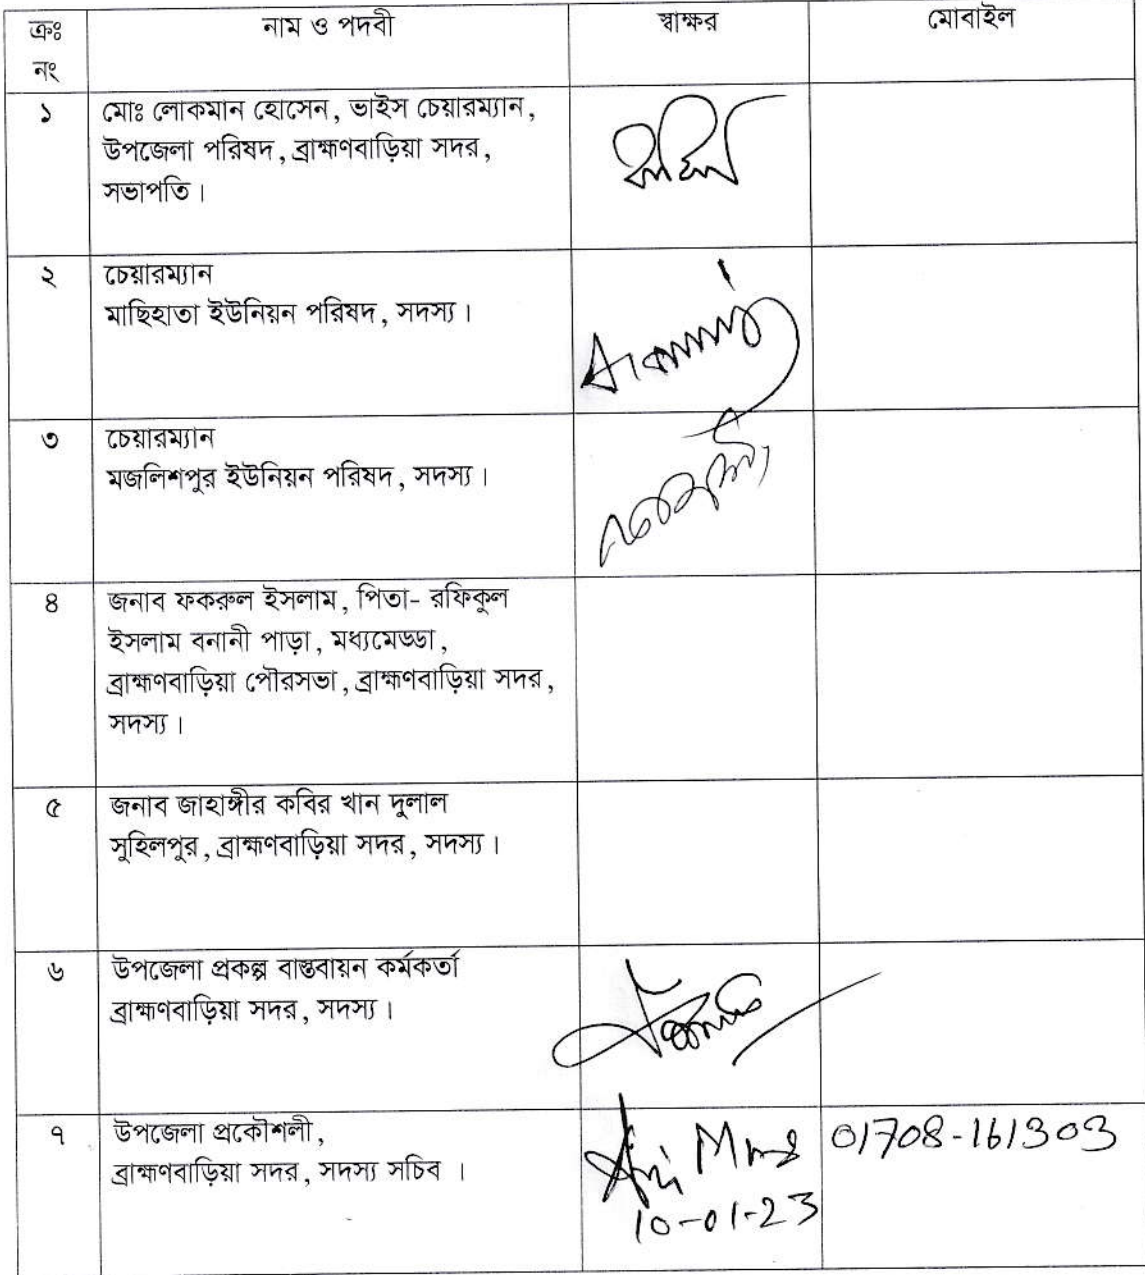 ক্রঃ নাম ও পদবী স্বাক্ষর মোবাইল
নং
১ মোঃ লোকমান হোসেন, ভাইস চেয়ারম্যান,
উপজেলা পরিষদ, ব্রাহ্মণবাড়িয়া সদর,
সভাপতি।
২ চেয়ারম্যান
মাছিহাতা ইউনিয়ন পরিষদ, সদস্য।
৩ চেয়ারম্যান
মজলিশপুর ইউনিয়ন পরিষদ, সদস্য।
৪ জনাব ফকরুল ইসলাম, পিতা- রফিকুল
ইসলাম বনানী পাড়া, মধ্যমেড্ডা,
ব্রাহ্মণবাড়িয়া পৌরসভা, ব্রাহ্মণবাড়িয়া সদর,
সদস্য।
৫ জনাব জাহাঙ্গীর কবির খান দুলাল
সুহিলপুর, ব্রাহ্মণবাড়িয়া সদর, সদস্য।
৬ উপজেলা প্রকল্প বাস্তবায়ন কর্মকর্তা
ব্রাহ্মণবাড়িয়া সদর, সদস্য।
৭ উপজেলা প্রকৌশলী, 01708-161303
ব্রাহ্মণবাড়িয়া সদর, সদস্য সচিব ।
10-01-23